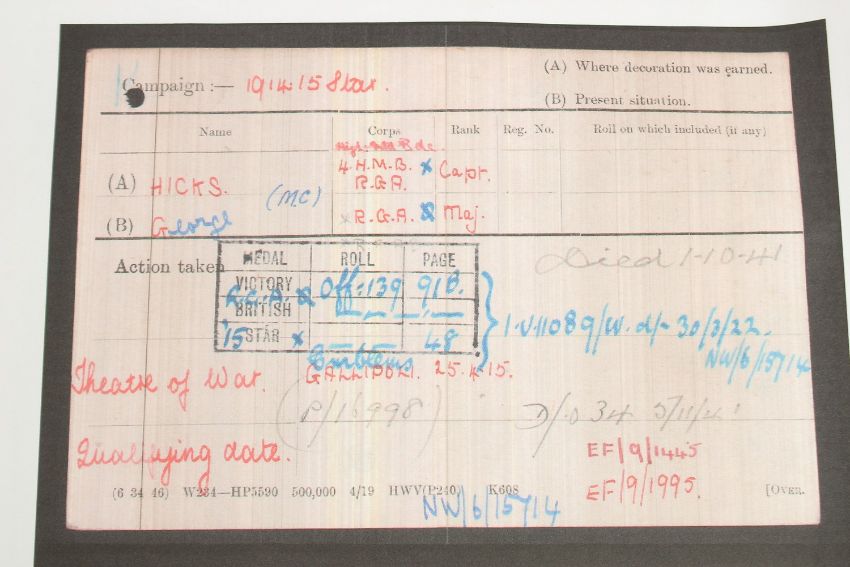 Campaign :— 1914 15 Star.
(A) Where decoration was earned.
(B) Present situation.
Name Corps Rank Reg. No. Roll on which included (if any)
(A) HICKS. 4. H.M.B. x Capt.
R.G.A.
(B) George (MC) x R.G.A. Maj.
Action taken
MEDAL ROLL PAGE
VICTORY R.G.A. Off: 139 91B.
BRITISH
'15 STAR x 48
Died 1-10-41
I.V.11089/W. d/- 30/3/22.
NW/6/15714
Emblems
Theatre of War. GALLIPOLI. 25.4.15.
(P/16998) D/O 34 5/11/41
Qualifying date.
EF/9/1445
EF/9/1995.
(6 34 46) W234—HP5590 500,000 4/19 HWV(P240) K608 [OVER.
NW/6/15714